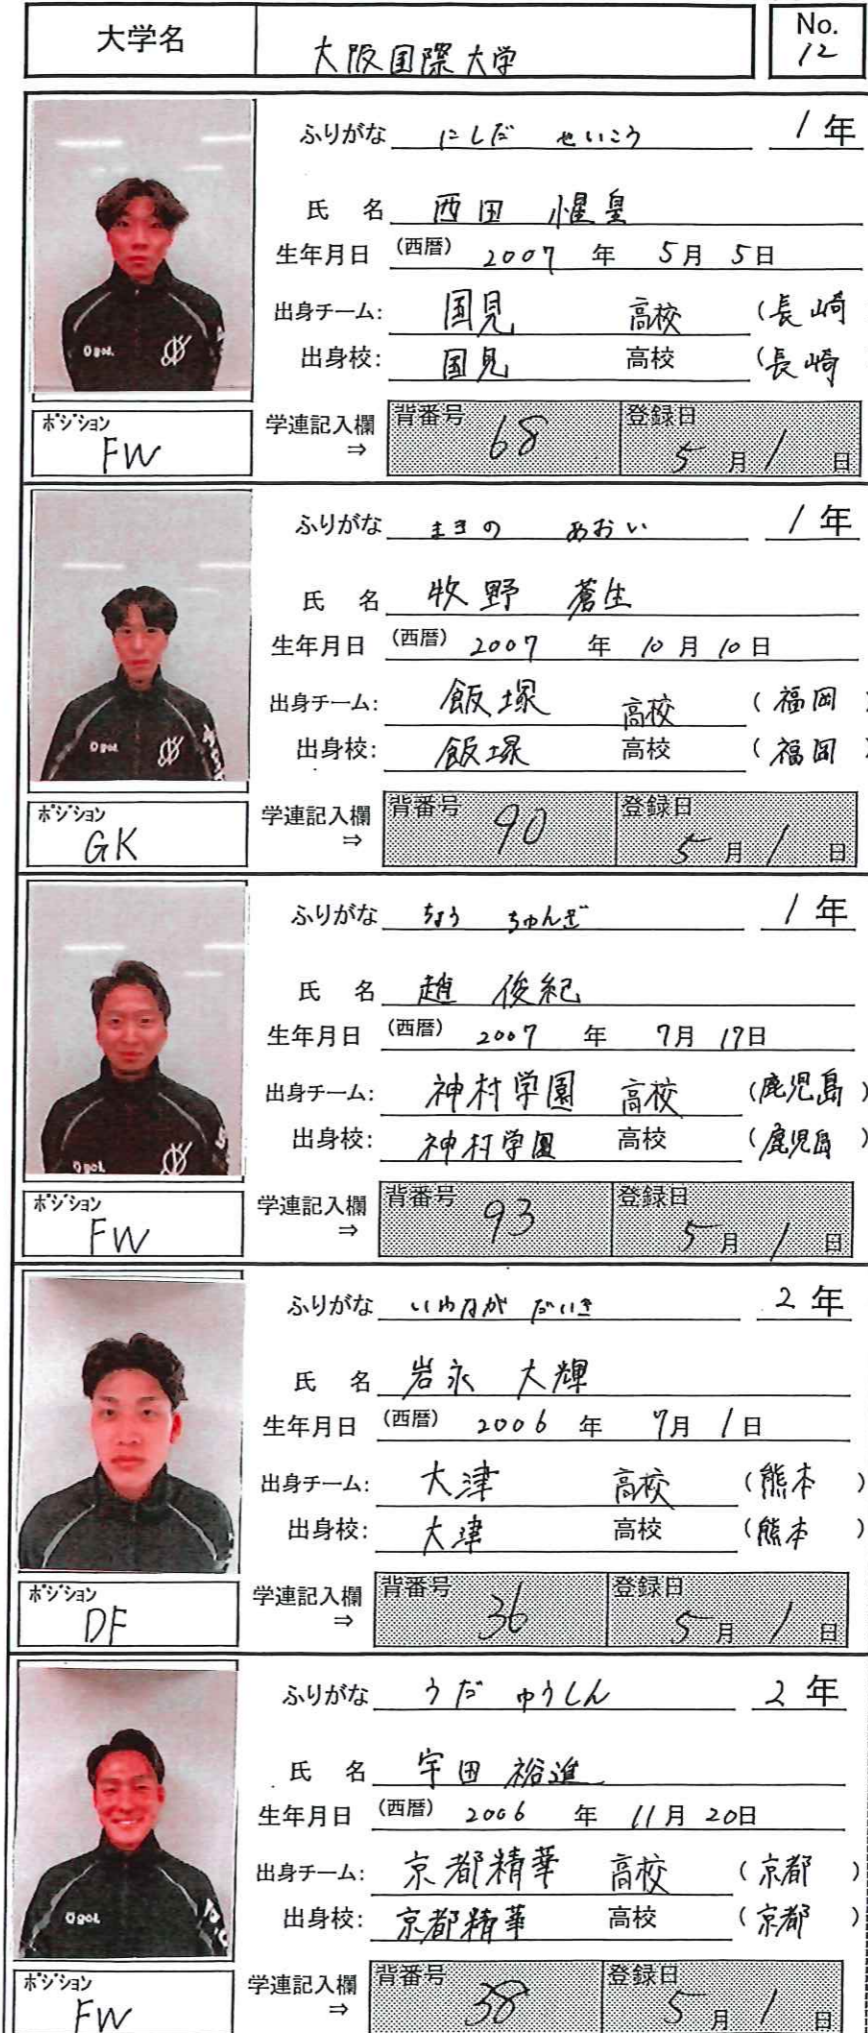 大学名 大阪国際大学 No. 12
ふりがな にしだ せいこう 1年
氏 名 西田 惺皇
生年月日 (西暦) 2007 年 5月 5日
出身チーム: 国見 高校 (長崎
出身校: 国見 高校 (長崎
ポジション FW 学連記入欄 ⇒ 背番号 68 登録日 5月1日
ふりがな まきの あおい 1年
氏 名 牧野 蒼生
生年月日 (西暦) 2007 年 10月10日
出身チーム: 飯塚 高校 (福岡)
出身校: 飯塚 高校 (福岡)
ポジション GK 学連記入欄 ⇒ 背番号 90 登録日 5月1日
ふりがな ちょう ちゅんぎ 1年
氏 名 趙 俊紀
生年月日 (西暦) 2007 年 7月17日
出身チーム: 神村学園 高校 (鹿児島)
出身校: 神村学園 高校 (鹿児島)
ポジション FW 学連記入欄 ⇒ 背番号 93 登録日 5月1日
ふりがな いわながだいき 2年
氏 名 岩永 大輝
生年月日 (西暦) 2006 年 7月1日
出身チーム: 大津 高校 (熊本)
出身校: 大津 高校 (熊本)
ポジション DF 学連記入欄 ⇒ 背番号 36 登録日 5月1日
ふりがな うだ ゆうしん 2年
氏 名 宇田 裕進
生年月日 (西暦) 2006 年 11月20日
出身チーム: 京都精華 高校 (京都)
出身校: 京都精華 高校 (京都)
ポジション FW 学連記入欄 ⇒ 背番号 38 登録日 5月1日